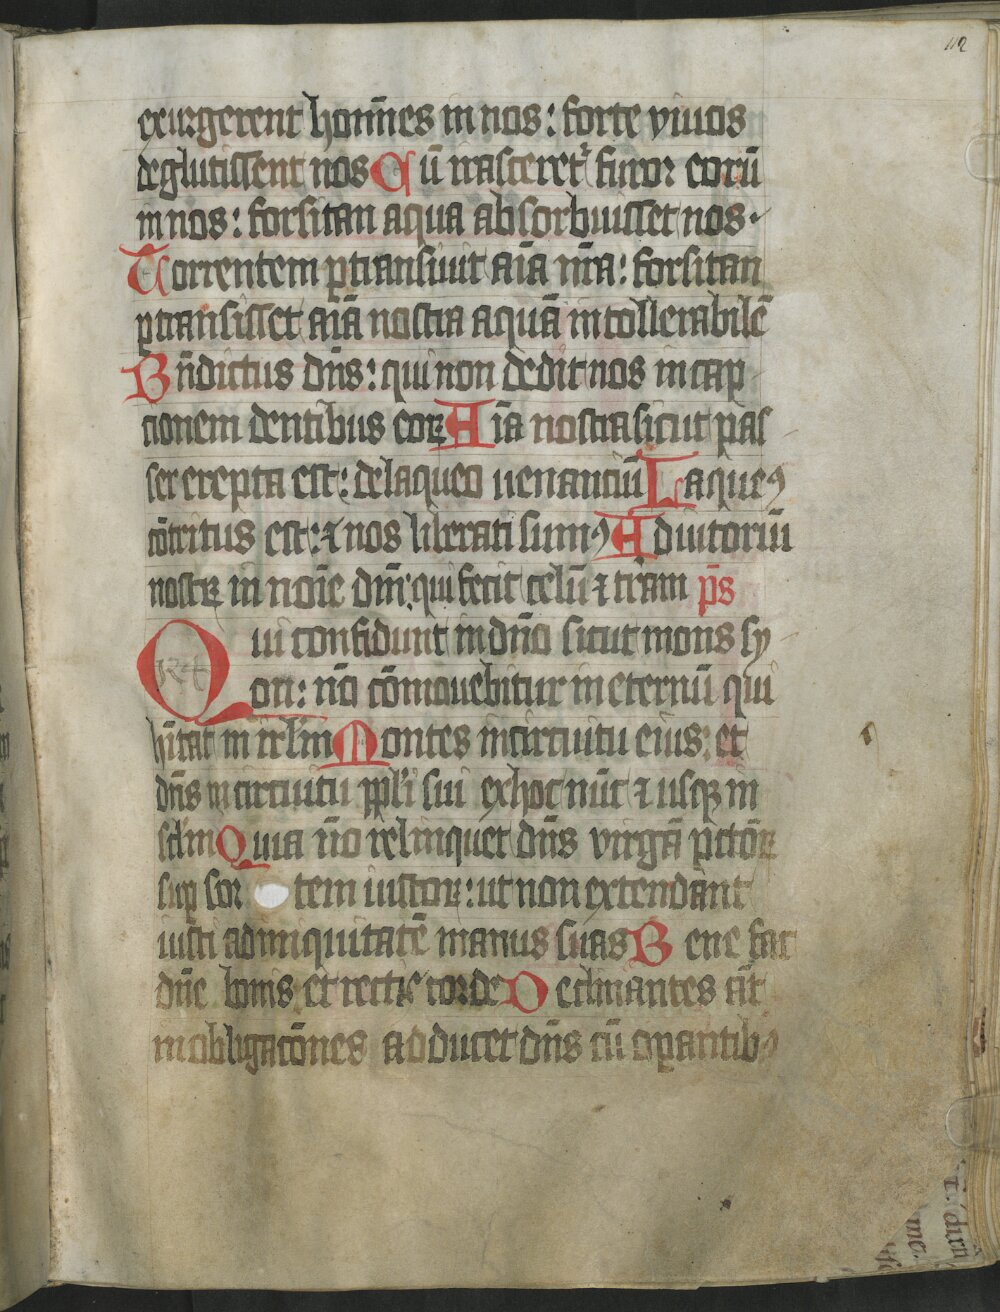 112
exurgerent homīnes in nos: forte vivos
deglutissent nos Cū irasceret᷑ furor eorū
in nos: forsitan aqua absorbuisset nos·
Torrentem ꝑtransivit aīa nr̄a: forsitan
ꝑtransisset aīa nostra aquā intollerabilē
Bn̄dictus dn̄s: qui non dedit nos in cap
tionem dentibus eoꝝ Aīa nostra sicut pas
ser erepta est: de laqueo venantiū Laqueꝰ
cōtritus est: ⁊ nos liberati sumꝰ Adiutoriū
nostꝝ in noīe dn̄i: qui fecit celū ⁊ tr̄am p̄s
Qui confidunt in dn̄o sicut mons sy
on: nō cōmovebitur in eternū qui
hītat in irl̄m Montes in circuitu eius: et
dn̄s in circuitu ppl̄i sui ex hoc nūc ⁊ usqꝫ in
sclm̄ Quia nō relinquet dn̄s virgā pctōꝝ
suꝑ sor tem iustoꝝ: ut non extendant
iusti ad iniquitatē manus suas Bene fac
dn̄e bonis et rectis corde Declinantes āt
in obligatōnes adducet dn̄s cū oꝑantibꝰ